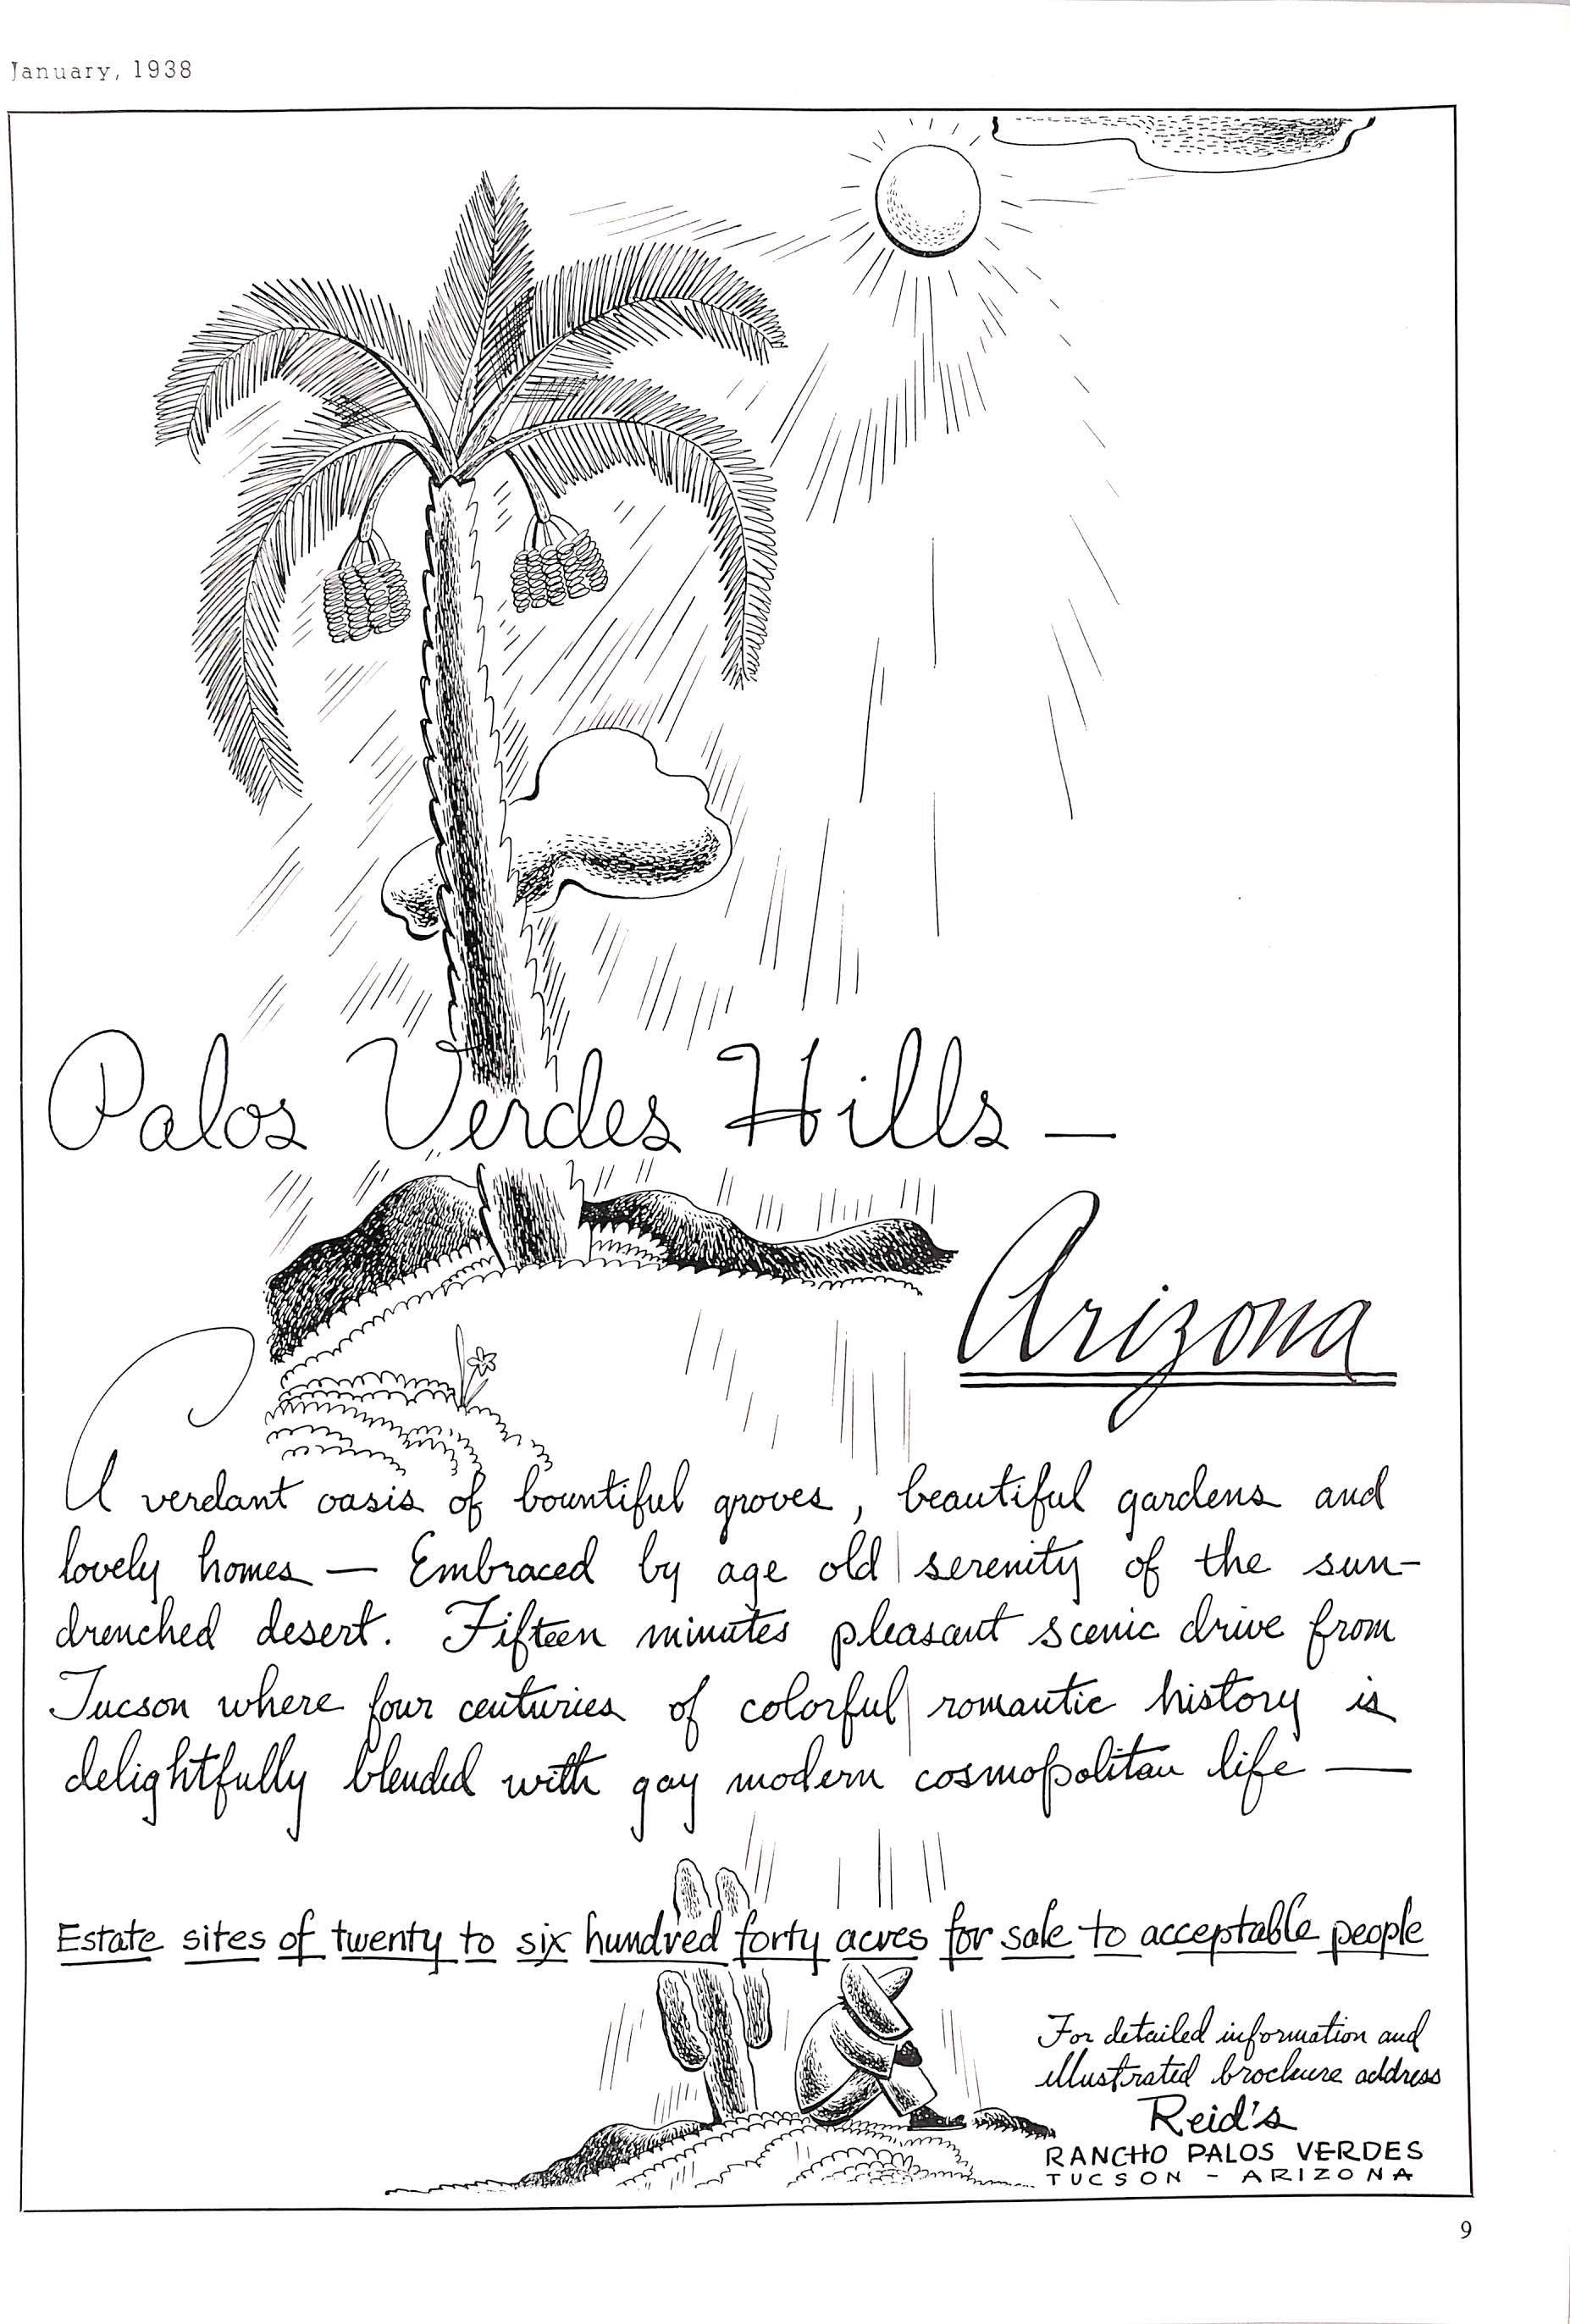 January, 1938
Palos Verdes Hills —
Arizona
A verdant oasis of bountiful groves, beautiful gardens and
lovely homes — Embraced by age old serenity of the sun-
drenched desert. Fifteen minutes pleasant scenic drive from
Tucson where four centuries of colorful romantic history is
delightfully blended with gay modern cosmopolitan life —
Estate sites of twenty to six hundred forty acres for sale to acceptable people
For detailed information and
illustrated brochure address
Reid's
RANCHO PALOS VERDES
TUCSON - ARIZONA
9